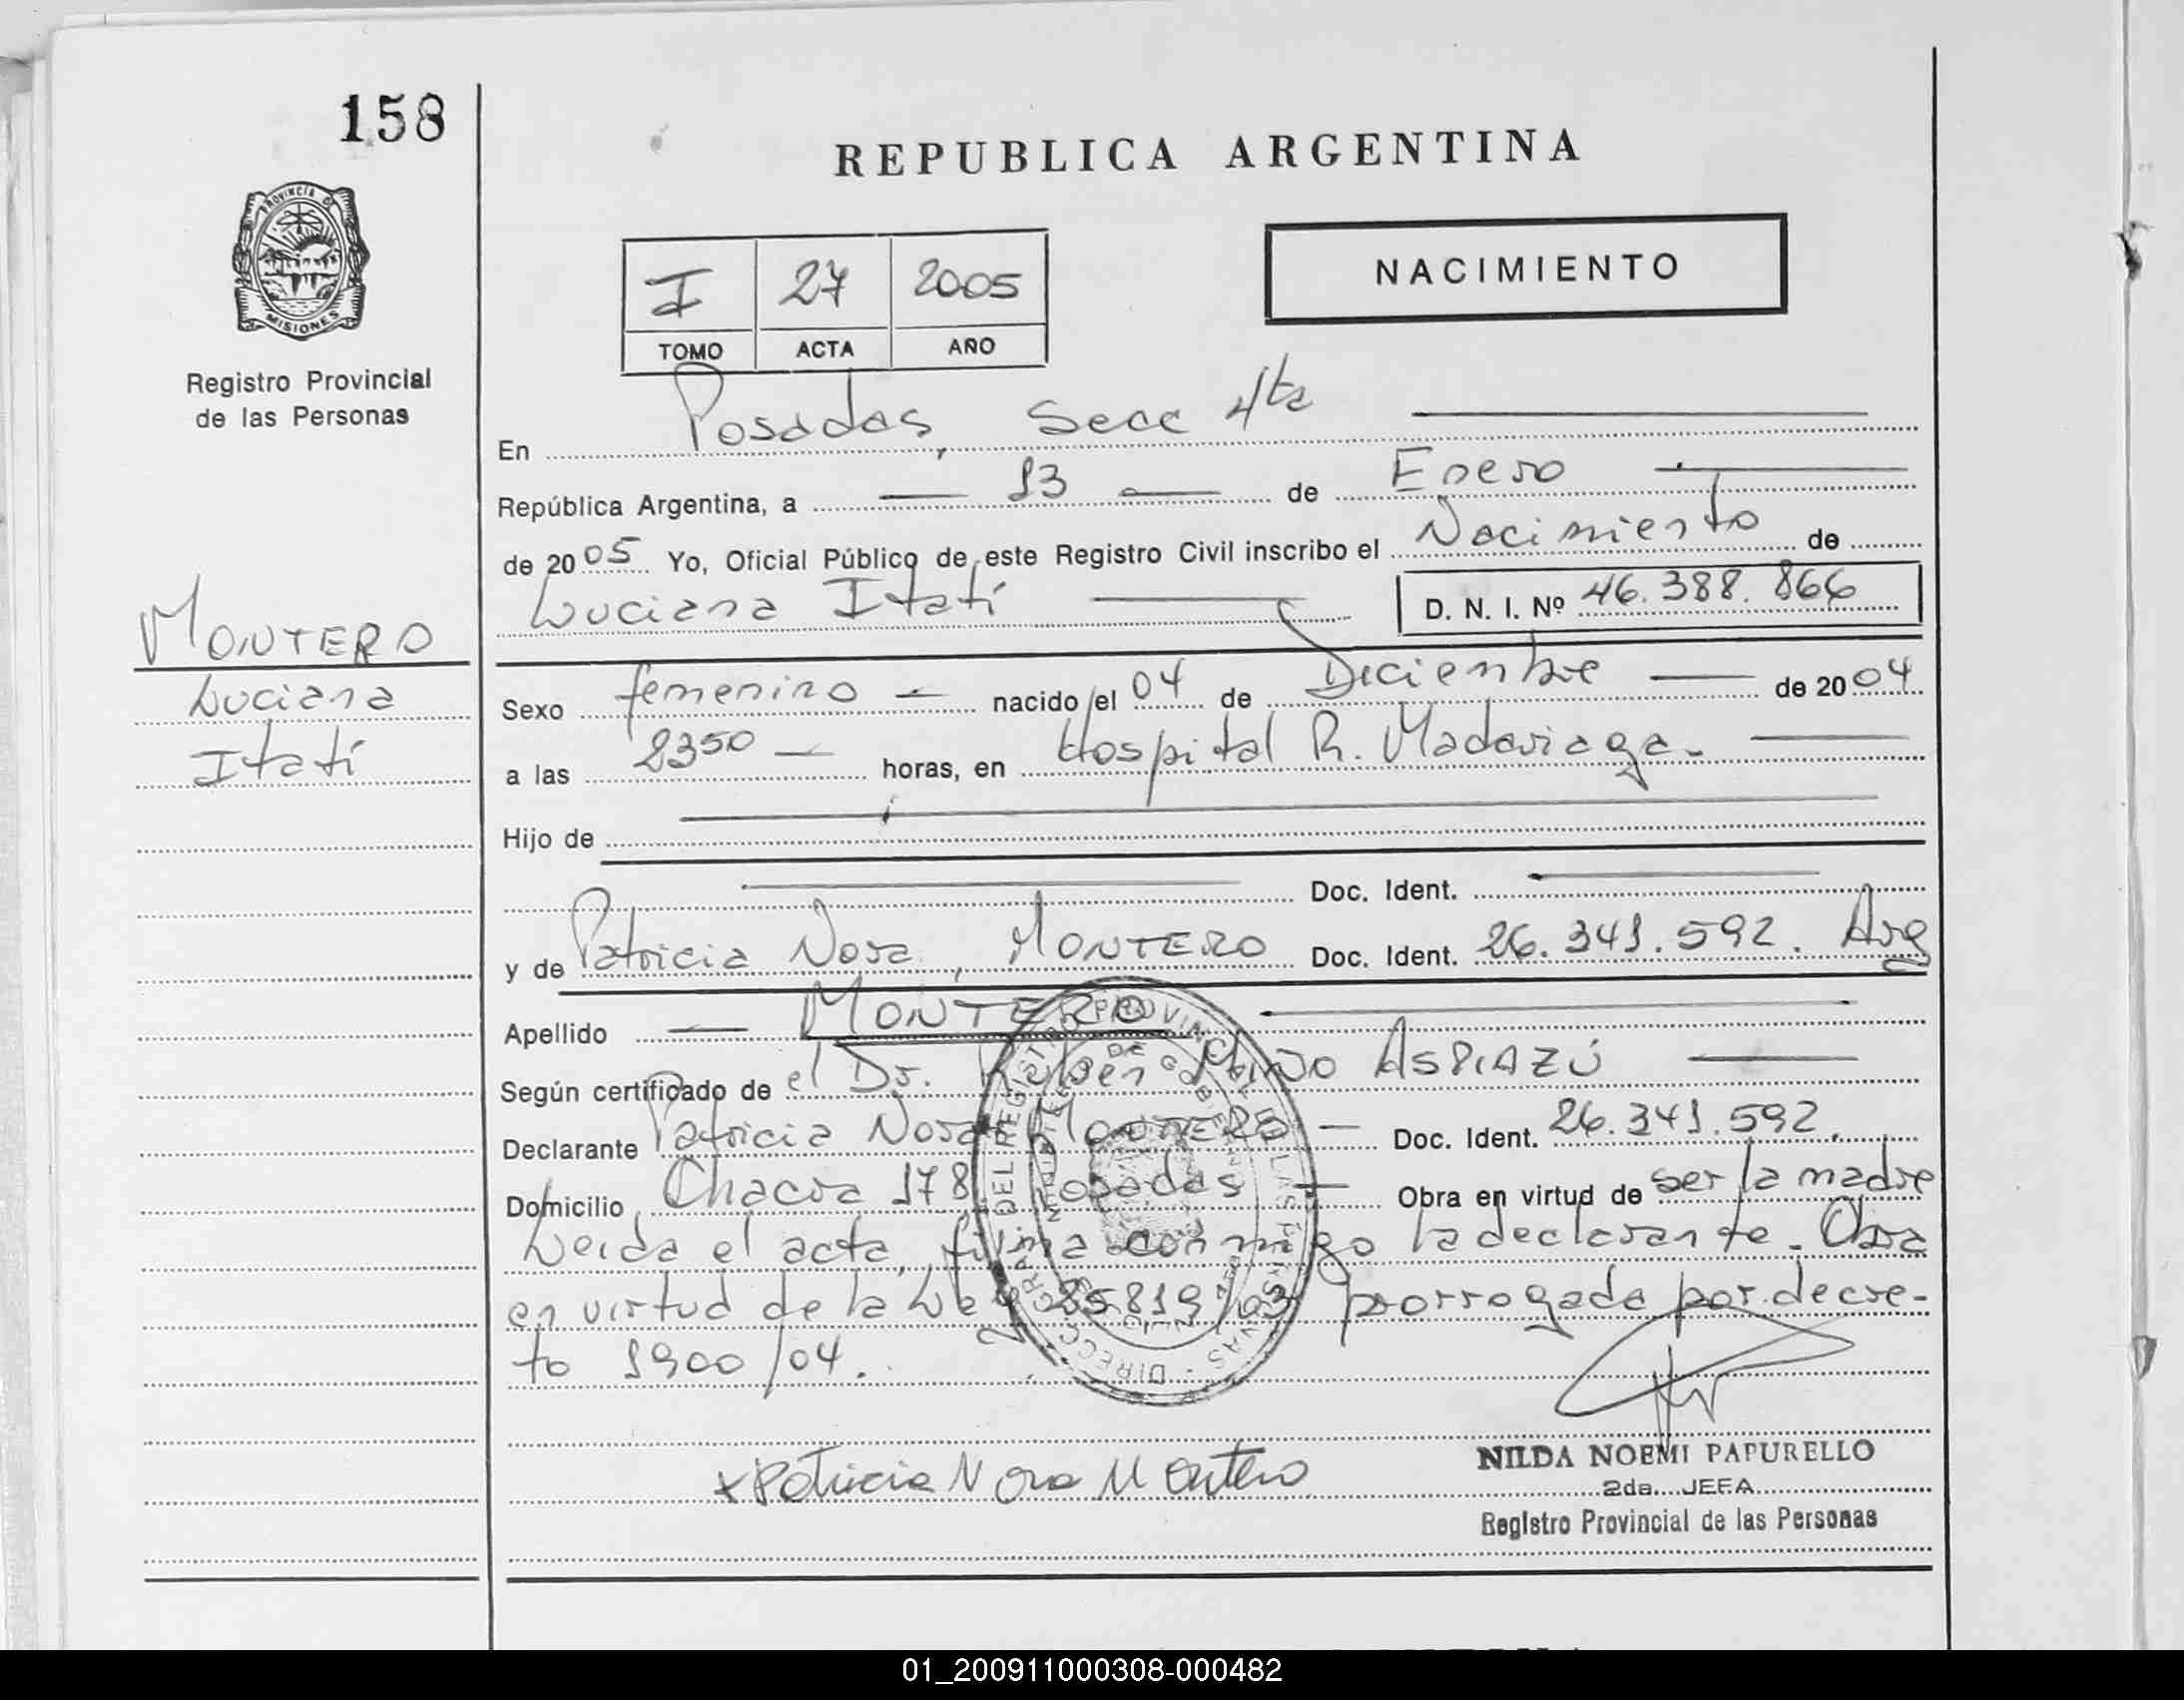 158
REPUBLICA ARGENTINA
PROVINCIA DE
MISIONES
Registro Provincial
de las Personas
I 27 2005
TOMO ACTA AÑO
NACIMIENTO
En Posadas, Secc 4ta
República Argentina, a 13 de Enero
de 2005 Yo, Oficial Público de este Registro Civil inscribo el Nacimiento de
Luciana Itatí D. N. I. Nº 46.388.866
MONTERO
Luciana
Itatí
Sexo femenino nacido el 04 de Diciembre de 2004
a las 2350 horas, en Hospital R. Madariaga.
Hijo de
Doc. Ident.
y de Patricia Nora, MONTERO Doc. Ident. 26.341.592. Arg
Apellido MONTERO
Según certificado de el Dr. Ruben ASPIAZÚ
Declarante Patricia Nora MONTERO Doc. Ident. 26.341.592.
Domicilio Chacra 178 Posadas Obra en virtud de ser la madre
Leida el acta, firma conmigo la declarante. Obra
en virtud de la Ley 25819/03 prorrogada por decre-
to 1900/04.
x Patricia Nora Montero
NILDA NOEMI PAPURELLO
2da. JEFA
Registro Provincial de las Personas
01_200911000308-000482